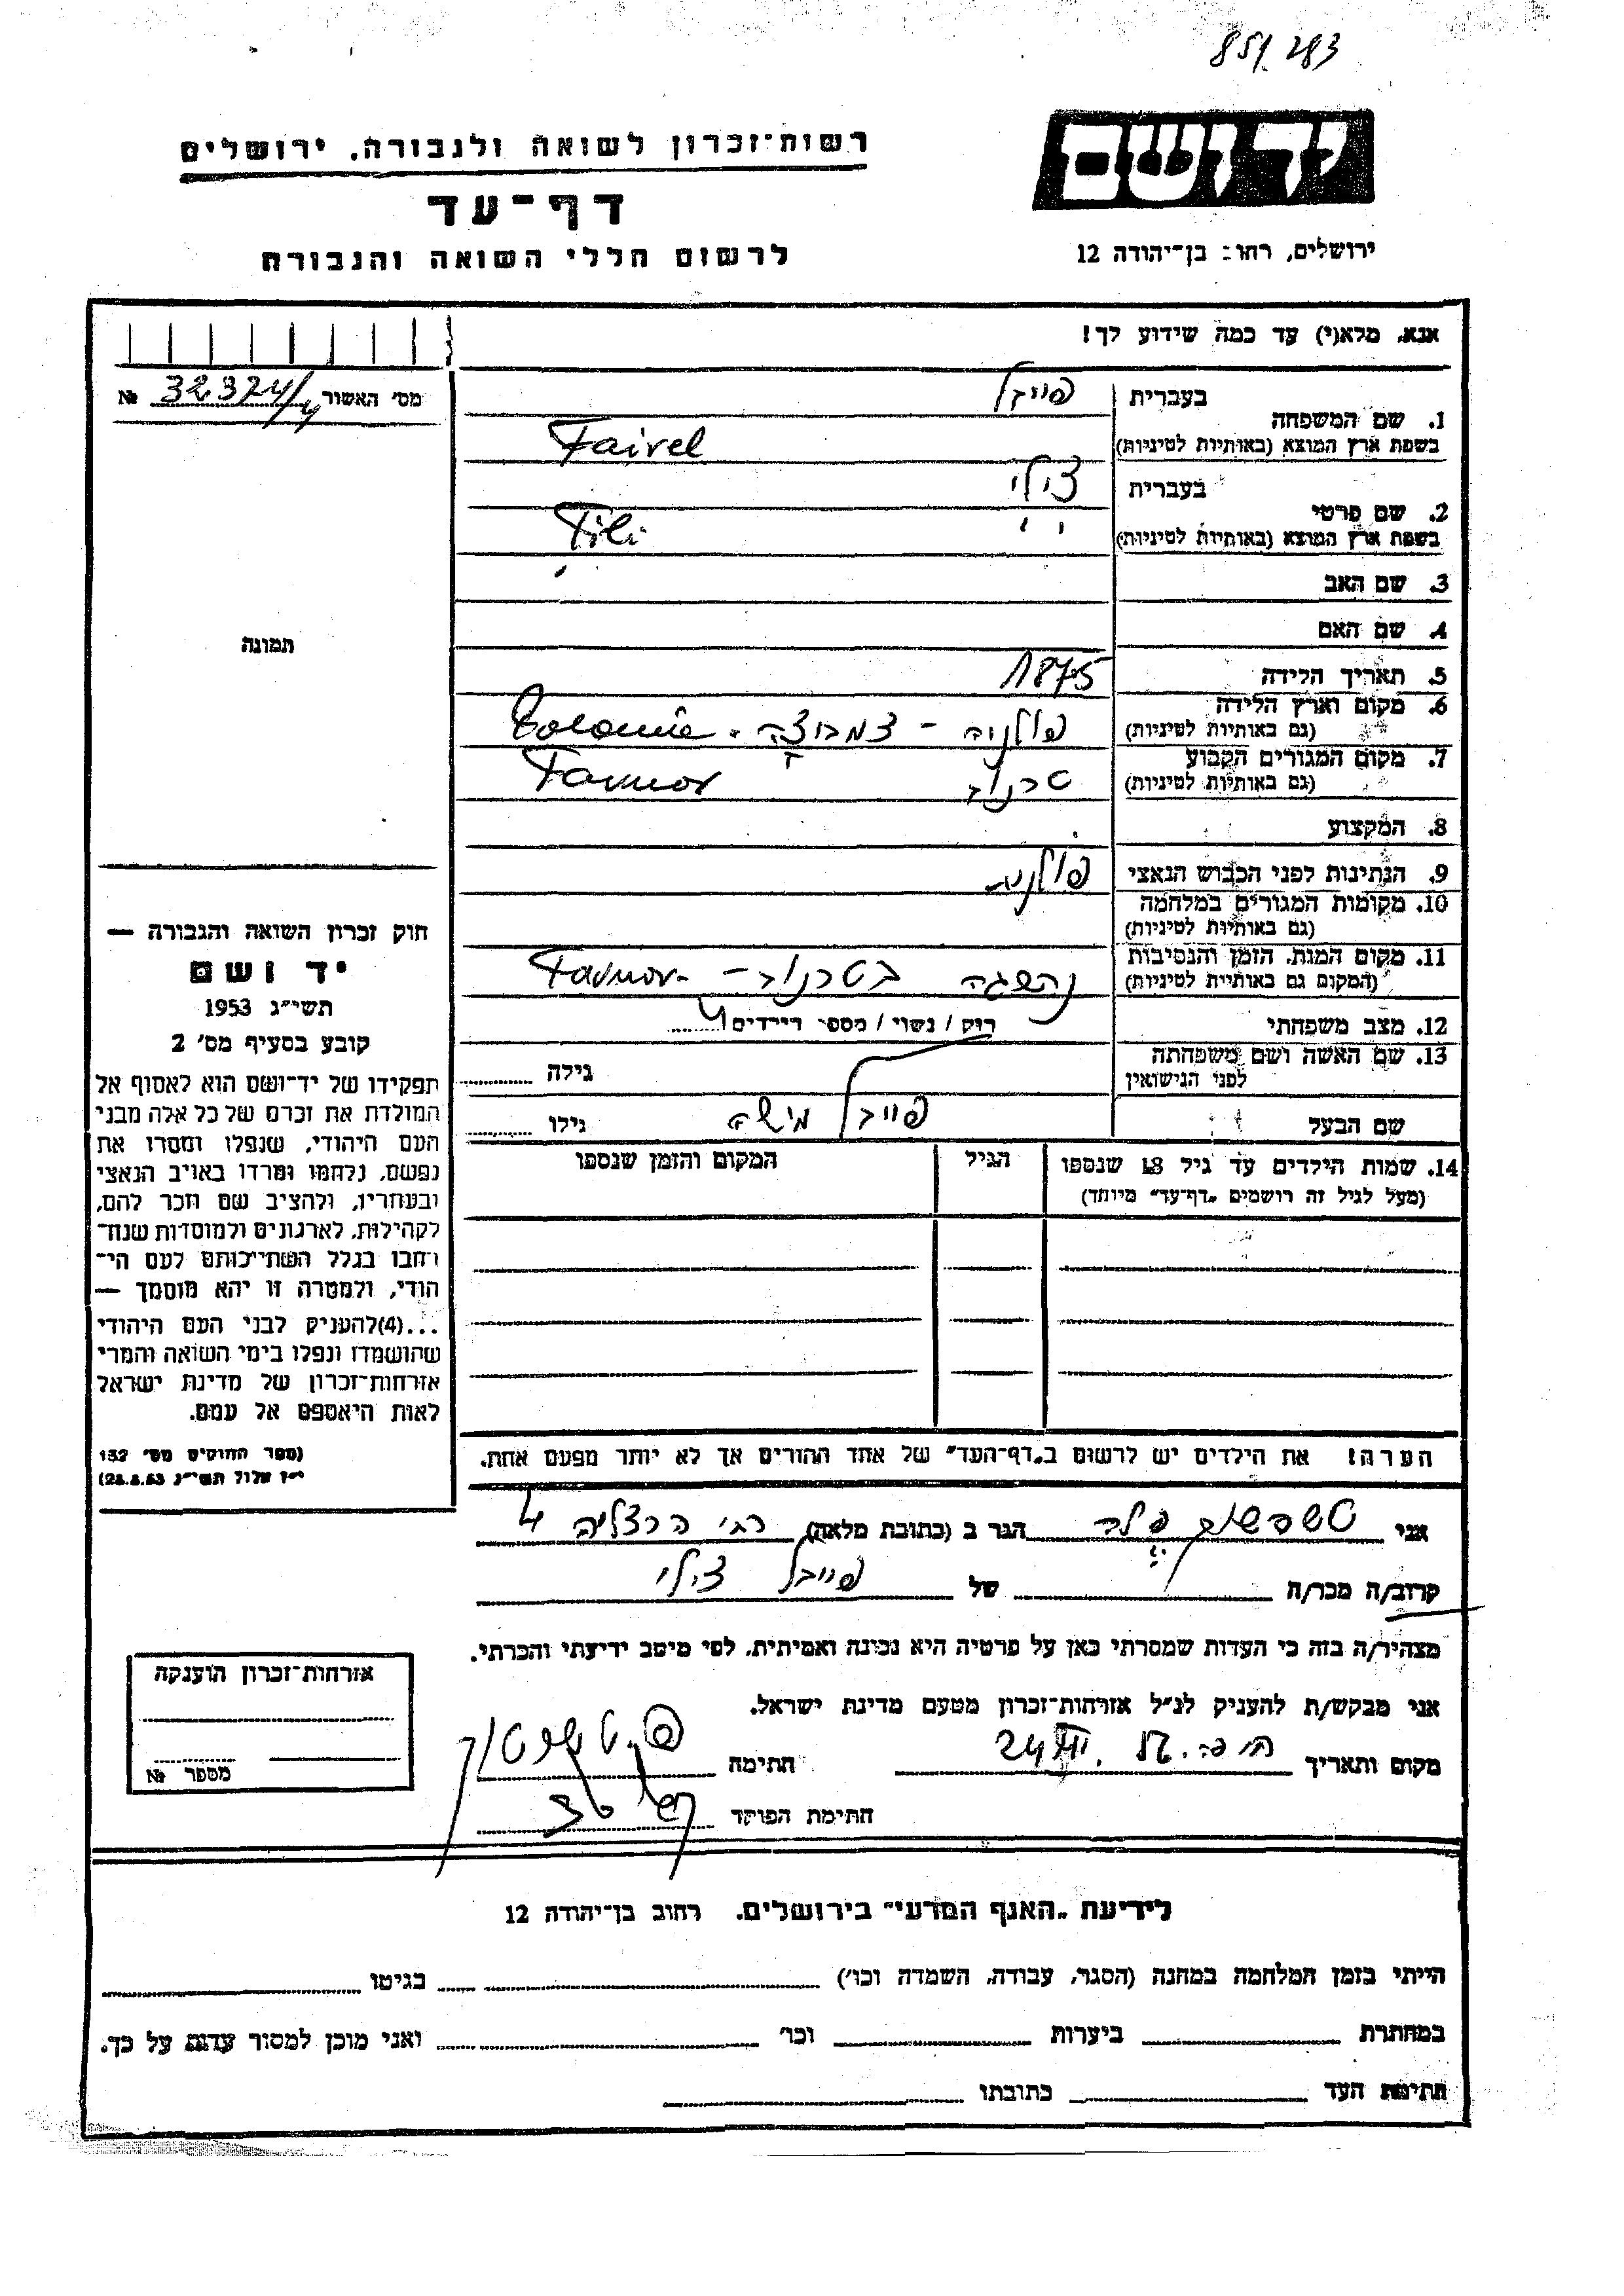 851/283
יד ושם
רשות־זכרון לשואה ולגבורה, ירושלים
דף־עד
לרשום חללי השואה והגבורה
ירושלים, רחוב בן־יהודה 12
אנא, מלא(י) עד כמה שידוע לך!
מס' האשור 32324/4 №
1. שם המשפחה
בעברית פייבל
בשפת ארץ המוצא (באותיות לטיניות) Faivel
2. שם פרטי
בעברית צילי
בשפת ארץ המוצא (באותיות לטיניות) Tili
3. שם האב
4. שם האם
תמונה
5. תאריך הלידה 1875
6. מקום וארץ הלידה
(גם באותיות לטיניות) פולניה -
7. מקום המגורים הקבוע
(גם באותיות לטיניות) טרנוב Tarnov
8. המקצוע
9. הנתינות לפני הכבוש הנאצי פולנית
10. מקומות המגורים במלחמה
(גם באותיות לטיניות)
11. מקום המות, הזמן והנסיבות
(המקום גם באותיות לטיניות) נהרגה בטרנוב - Tarnov
12. מצב משפחתי רוק / נשוי / מספר הילדים 4
13. שם האשה ושם משפחתה
לפני הנישואין גילה
שם הבעל פייבל משה גילו
14. שמות הילדים עד גיל 18 שנספו הגיל המקום והזמן שנספו
(מעל לגיל זה רושמים „דף־עד" מיוחד)
חוק זכרון השואה והגבורה —
יד ושם
תשי"ג 1953
קובע בסעיף מס' 2
תפקידו של יד־ושם הוא לאסוף אל
המולדת את זכרם של כל אלה מבני
העם היהודי, שנפלו ומסרו את
נפשם, נלחמו ומרדו באויב הנאצי
ובעוזריו, ולהציב שם וזכר להם,
לקהילות, לארגונים ולמוסדות שנח־
רבו בגלל השתייכותם לעם הי־
הודי, ולמטרה זו יהא מוסמך —
...(4)להעניק לבני העם היהודי
שהושמדו ונפלו בימי השואה והמרי
אזרחות־זכרון של מדינת ישראל
לאות היאספם אל עמם.
(ספר החוקים מס' 132
י"ז אלול תשי"ג 28.8.53)
הערה! את הילדים יש לרשום ב„דף־העד" של אחד ההורים אך לא יותר מפעם אחת.
אני הגר ב (כתובת מלאה) הרצליה 4
קרוב/ה מכר/ה של פייבל צילי
מצהיר/ה בזה כי העדות שמסרתי כאן על פרטיה היא נכונה ואמיתית, לפי מיטב ידיעתי והכרתי.
אני מבקש/ת להעניק לנ"ל אזרחות־זכרון מטעם מדינת ישראל.
מקום ותאריך חיפה. חתימה
חתימת הפוקד
אזרחות־זכרון הוענקה
מספר №
לידיעת „האגף המדעי" בירושלים. רחוב בן־יהודה 12
הייתי בזמן המלחמה במחנה (הסגר, עבודה, השמדה וכו') בגיטו
במחתרת ביערות וכו' ואני מוכן למסור עדות על כך.
חתימת העד כתובתו